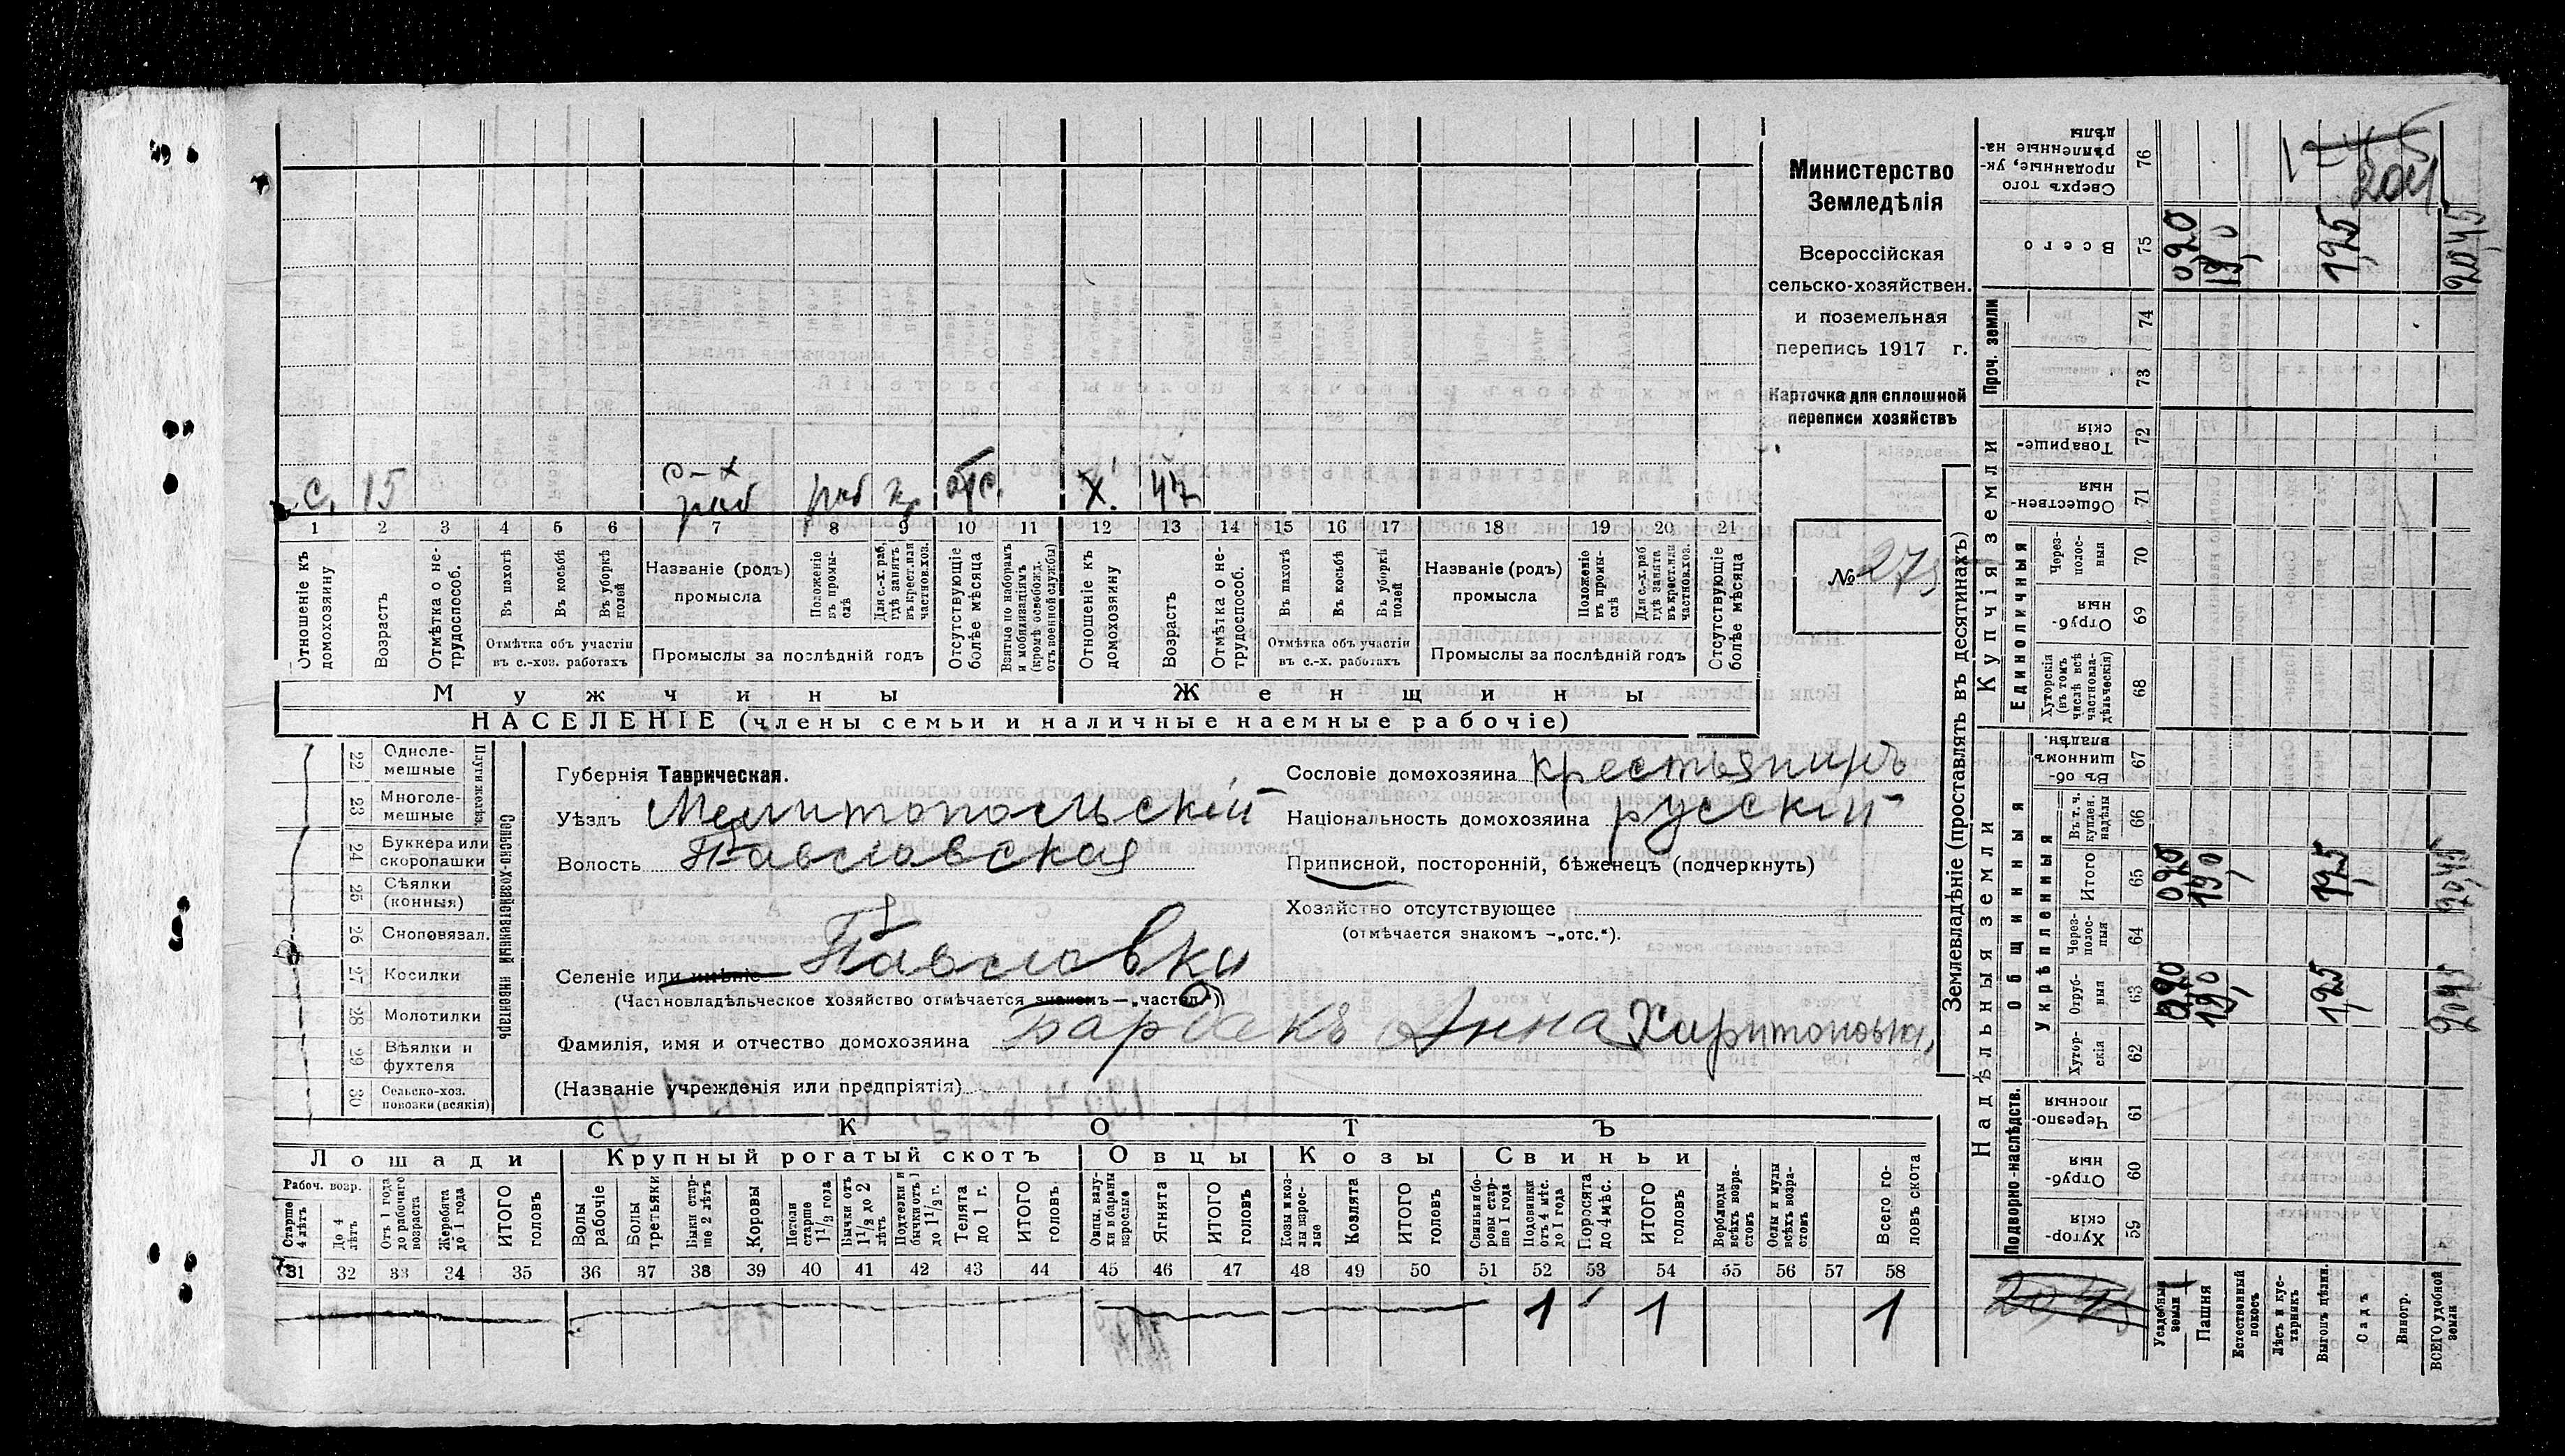 Министерство
Земледѣлія
Всероссійская
сельско-хозяйствен.
и поземельная
перепись 1917 г.
Карточка для сплошной
переписи хозяйствъ
№ 273
с. 15 с-х раб раб кр отс. х. 47
1 2 3 4 5 6 7 8 9 10 11 12 13 14 15 16 17 18 19 20 21
Отношеніе къ домохозяину
Возрастъ
Отмѣтка о не-трудоспособ.
Въ пахотѣ
Въ косьбѣ
Въ уборкѣ полей
Отмѣтка объ участіи въ с.-хоз. работахъ
Названіе (родъ) промысла
Положеніе въ промы-слѣ
Для с.-х. раб. гдѣ занятъ въ крест. или частнов. хоз.
Промыслы за послѣдній годъ
Отсутствующіе болѣе мѣсяца
Взятые по наборамъ и мобилизаціямъ (кромѣ освобожд. отъ военной службы)
Отношеніе къ домохозяину
Возрастъ
Отмѣтка о не-трудоспособ.
Въ пахотѣ
Въ косьбѣ
Въ уборкѣ полей
Отмѣтка объ участіи въ с.-х. работахъ
Названіе (родъ) промысла
Положеніе въ промы-слѣ
Для с.-х. раб. гдѣ занята въ крест. или частнов. хоз.
Промыслы за послѣдній годъ
Отсутствующіе болѣе мѣсяца
Мужчины Женщины
НАСЕЛЕНІЕ (члены семьи и наличные наемные рабочіе)
Сельско-хозяйственный инвентарь
22 Одноле-мешные
23 Многоле-мешные
24 Буккера или скоропашки
25 Сѣялки (конныя)
26 Сноповязал.
27 Косилки
28 Молотилки
29 Вѣялки и фухтеля
30 Сельско-хоз. повозки (всякія)
Губернія Таврическая.
Уѣздъ Мелитопольскій
Волость Павловская
Селеніе или имѣніе Павловки
(Частновладѣльческое хозяйство отмѣчается знакомъ —„частвл.“)
Фамилія, имя и отчество домохозяина Бардакъ Анна Харитоновна
(Названіе учрежденія или предпріятія)
Сословіе домохозяина крестьянинъ
Національность домохозяина русскій
Приписной, посторонній, бѣженецъ (подчеркнуть)
Хозяйство отсутствующее
(отмѣчается знакомъ —„отс.“).
СКОТЪ
Лошади Крупный рогатый скотъ Овцы Козы Свиньи
Рабоч. возр.
Старше 4 лѣтъ
До 4 лѣтъ
Отъ 1 года до рабочаго возраста
Жеребята до 1 года
ИТОГО головъ
Волы рабочіе
Волы третьяки
Быки стар-ше 2 лѣтъ
Коровы
Нетели старше 1 1/2 года
Бычки отъ 1 1/2 до 2 лѣтъ
Подтелки и бычки отъ 1 до 1 1/2 г.
Телята до 1 г.
ИТОГО головъ
Овцы, валу-хи и бараны взрослые
Ягнята
ИТОГО головъ
Козы и коз-лы взрос-лые
Козлята
ИТОГО головъ
Свиньи и бо-ровы стар-ше 1 года
Подсвинки отъ 4 мѣс. до 1 года
Поросята до 4 мѣс.
ИТОГО головъ
Верблюды всѣхъ возра-стовъ
Ослы и мулы всѣхъ возра-стовъ
Всего го-ловъ скота
31 32 33 34 35 36 37 38 39 40 41 42 43 44 45 46 47 48 49 50 51 52 53 54 55 56 57 58
1 1 1
Землевладѣніе (проставлять въ десятинахъ)
Надѣльныя земли Купчія земли Проч. земли
Подворно-наслѣдств. Общинныя Укрѣпленныя Единоличныя
Сверхъ того проданные, ук-рѣпленные на-дѣлы 76
Всего 75
74
73
Товарище-скія 72
Обществен-ныя 71
Через-полос-ныя 70
Отруб-ныя 69
Хуторскія (въ томъ числѣ всѣ частновла-дѣльческія) 68
Въ об-щинномъ владѣн. 67
Въ т. ч. куплен. надѣлы 66
Итого 65
Через-полос-ныя 64
Отруб-ныя 63
Хутор-скія 62
Черезпо-лосныя 61
Отруб-ныя 60
Хутор-скія 59
Усадебныя земли
Пашня
Естественный покосъ
Лѣсъ и кус-тарникъ
Выгонъ цѣлин.
Садъ
Виногр.
ВСЕГО удобной земли
0,20 19,0 1,25 20,45
0,20 19,0 1,25 20,45
0,20 19,0 1,25 20,45
20,45